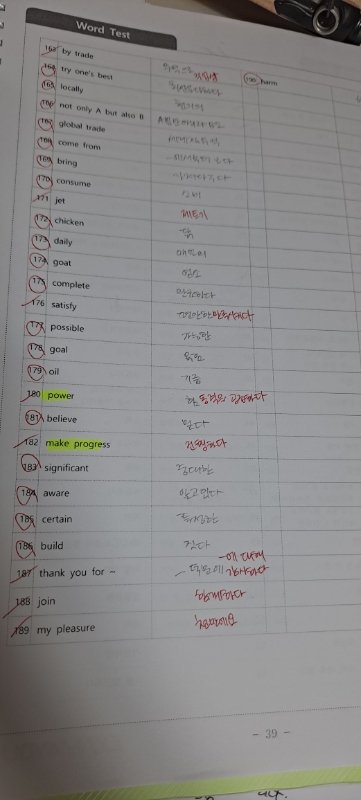 Word Test
163 by trade
164 try one's best
165 locally
166 not only A but also B
167 global trade
168 come from
169 bring
170 consume 소비
171 jet 제트기
172 chicken 닭
173 daily 매일의
174 goat 염소
175 complete 완성하다
176 satisfy
177 possible 가능한
178 goal 목표
179 oil 기름
180 power 힘
181 believe 믿다
182 make progress 진행하다
183 significant 중대한
184 aware 알고 있다
185 certain 특정한
186 build 짓다
187 thank you for ~ ~에 대해 감사하다
188 join 함께하다
189 my pleasure
190 harm
- 39 -